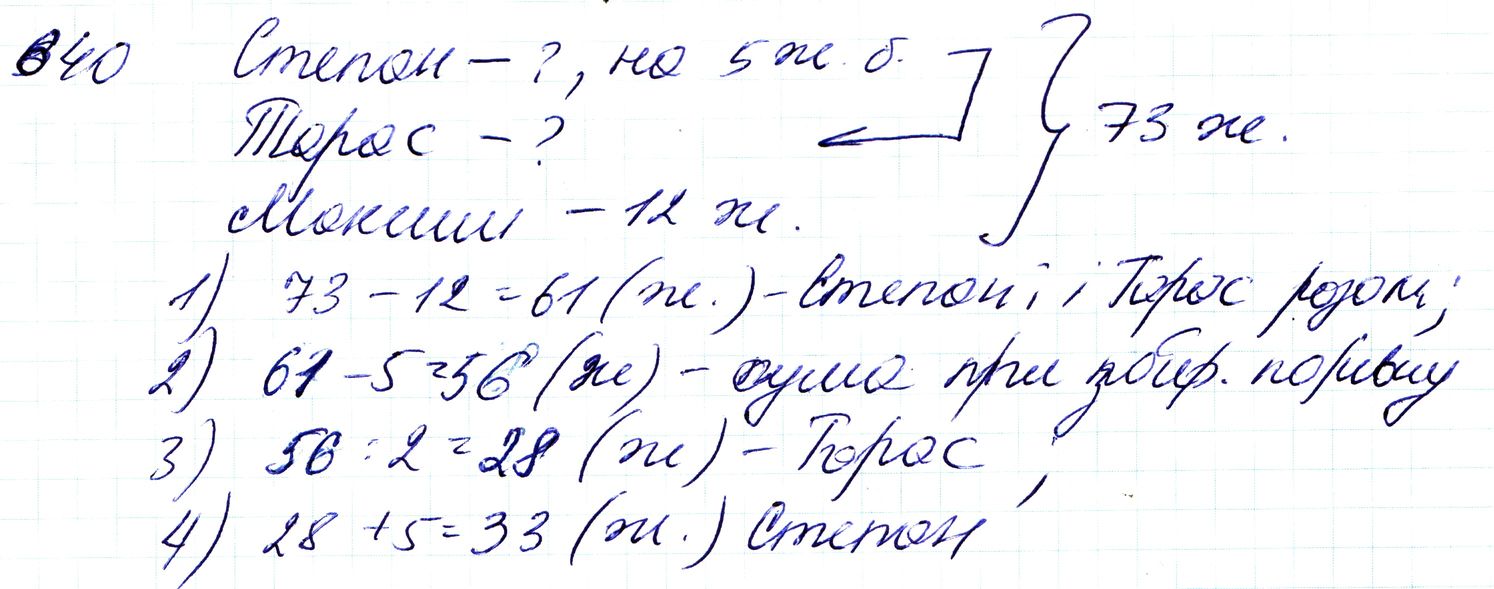 640 Степан - ?, на 5 ж. б. 73 ж.
Тарас - ?
Максим - 12 ж.
1) 73 - 12 = 61 (ж.) - Степан і Тарас разом;
2) 61 - 5 = 56 (ж) - сума при збир. порівну
3) 56 : 2 = 28 (ж) - Тарас ;
4) 28 + 5 = 33 (ж.) Степан